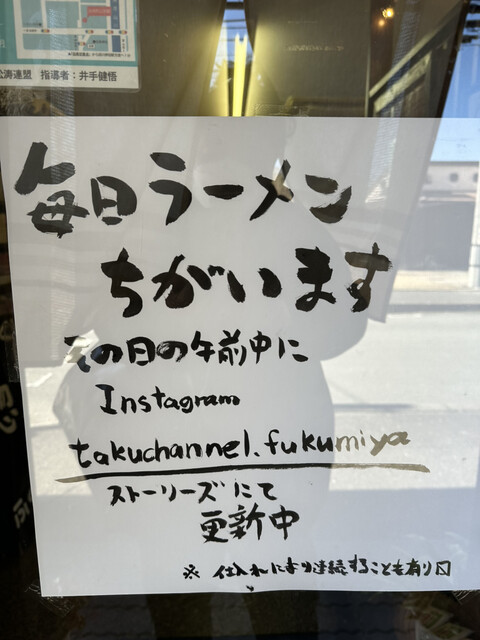 松涛連盟 指導者：井手健悟
毎日ラーメン
ちがいます
その日の午前中に
Instagram
takuchannel.fukumiya
ストーリーズにて
更新中
※ 仕入れにより連続することも有り〼